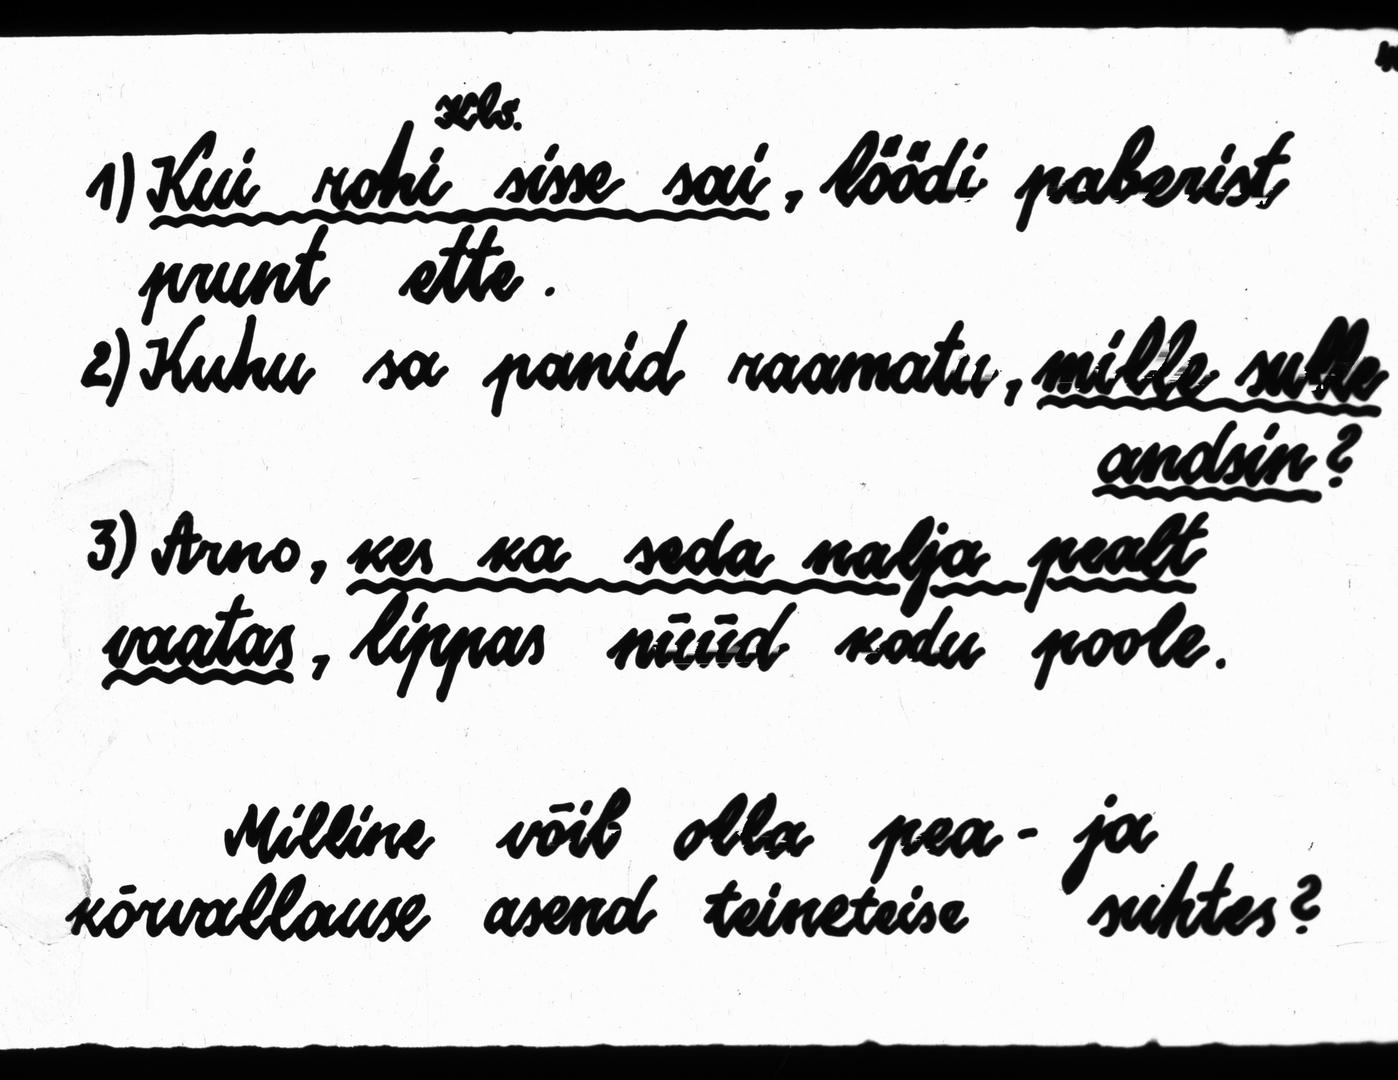 Kls.
1) Kui rohi sisse sai, löödi paberist
prunt ette.
2) Kuhu sa panid raamatu, mille sulle
andsin?
3) Arno, kes ka seda nalja pealt
vaatas, lippas nüüd kodu poole.
Milline võib olla pea- ja
kõrvallause asend teineteise suhtes?